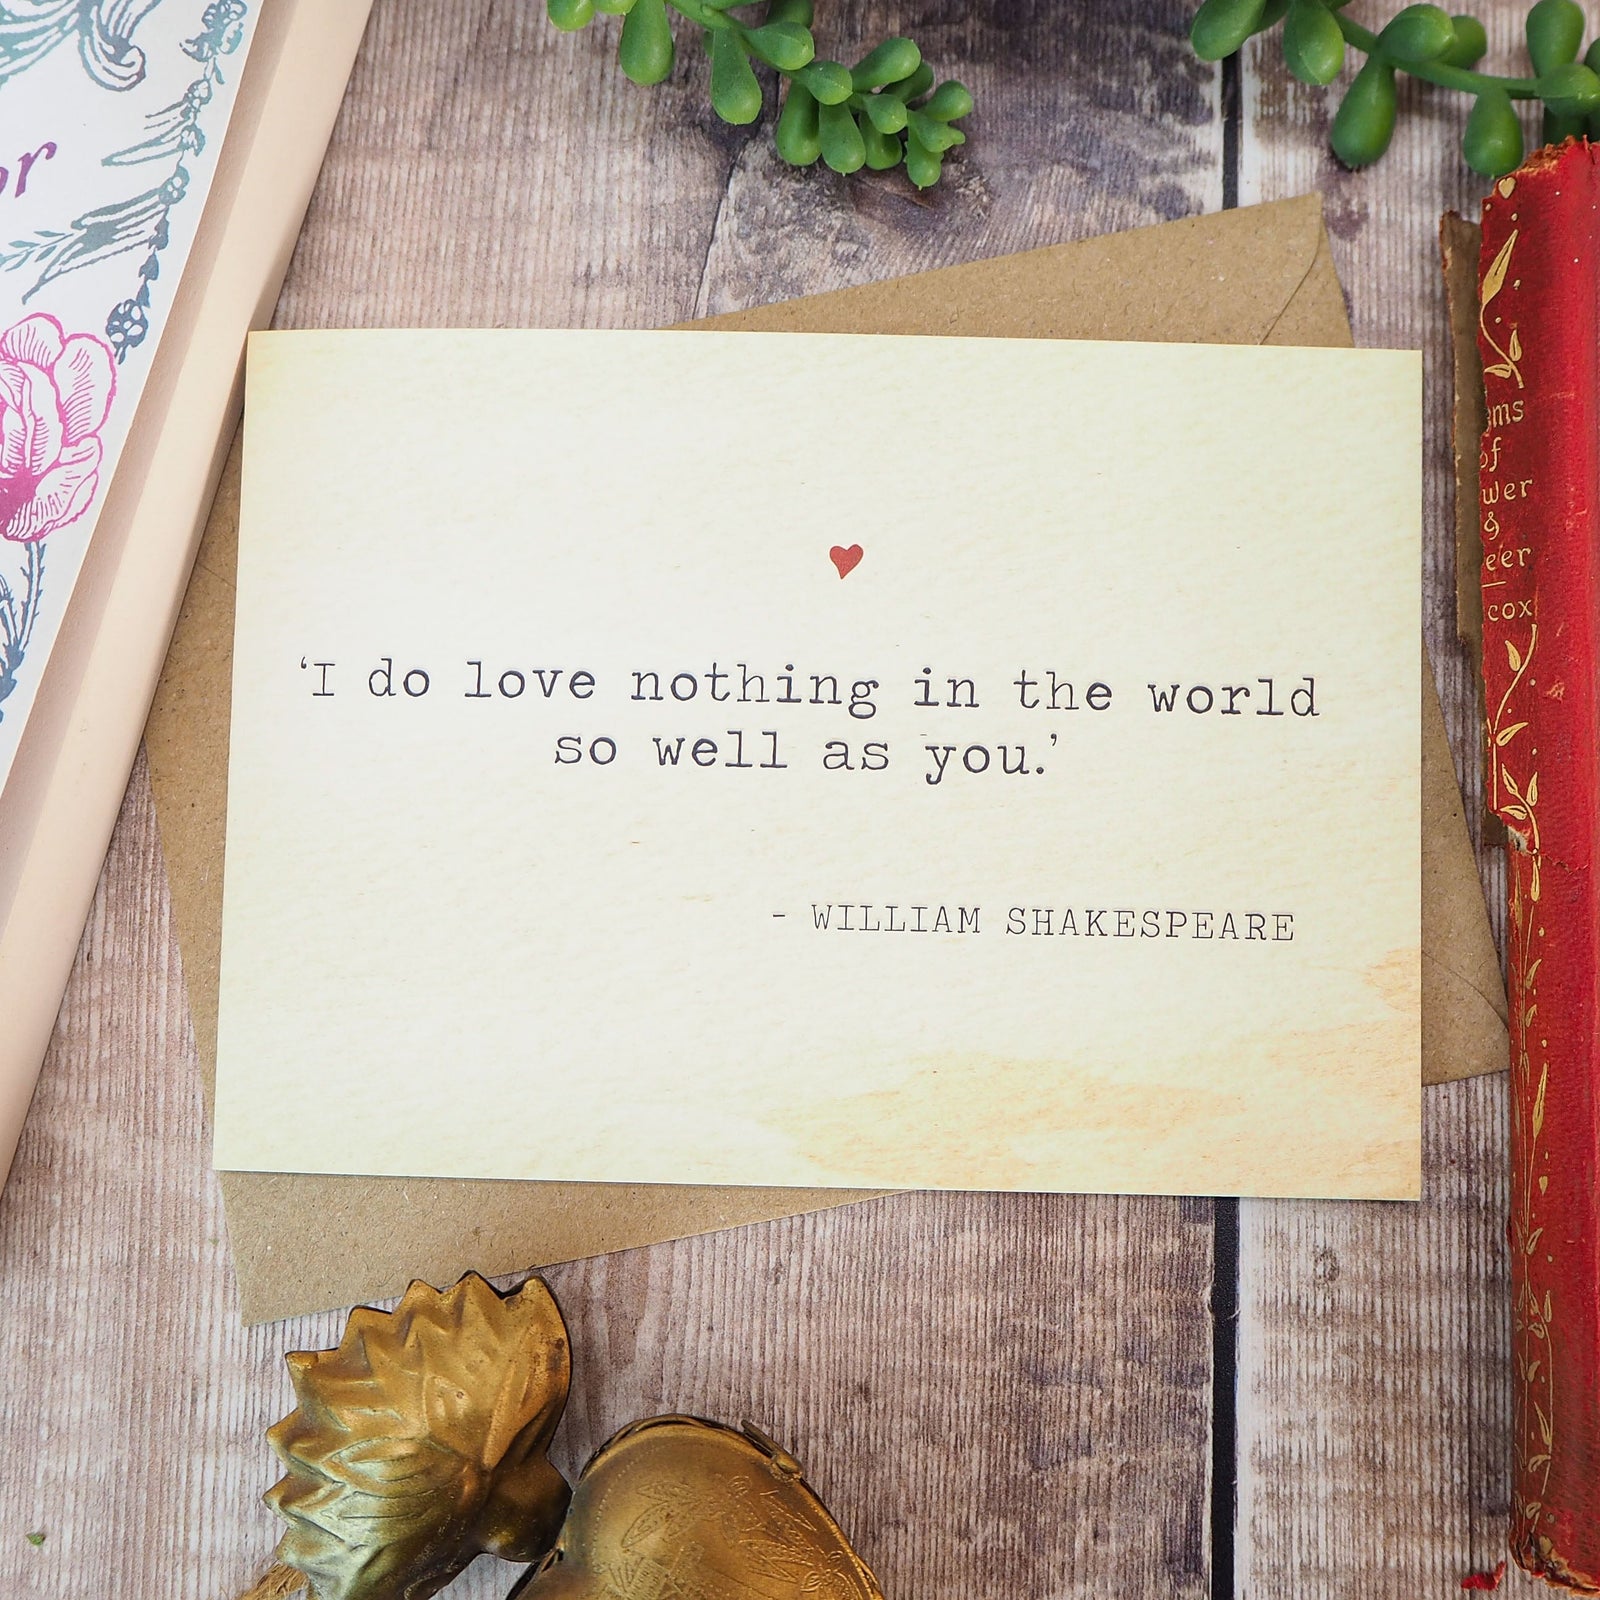 ‘I do love nothing in the world
so well as you.’
- WILLIAM SHAKESPEARE
of
&